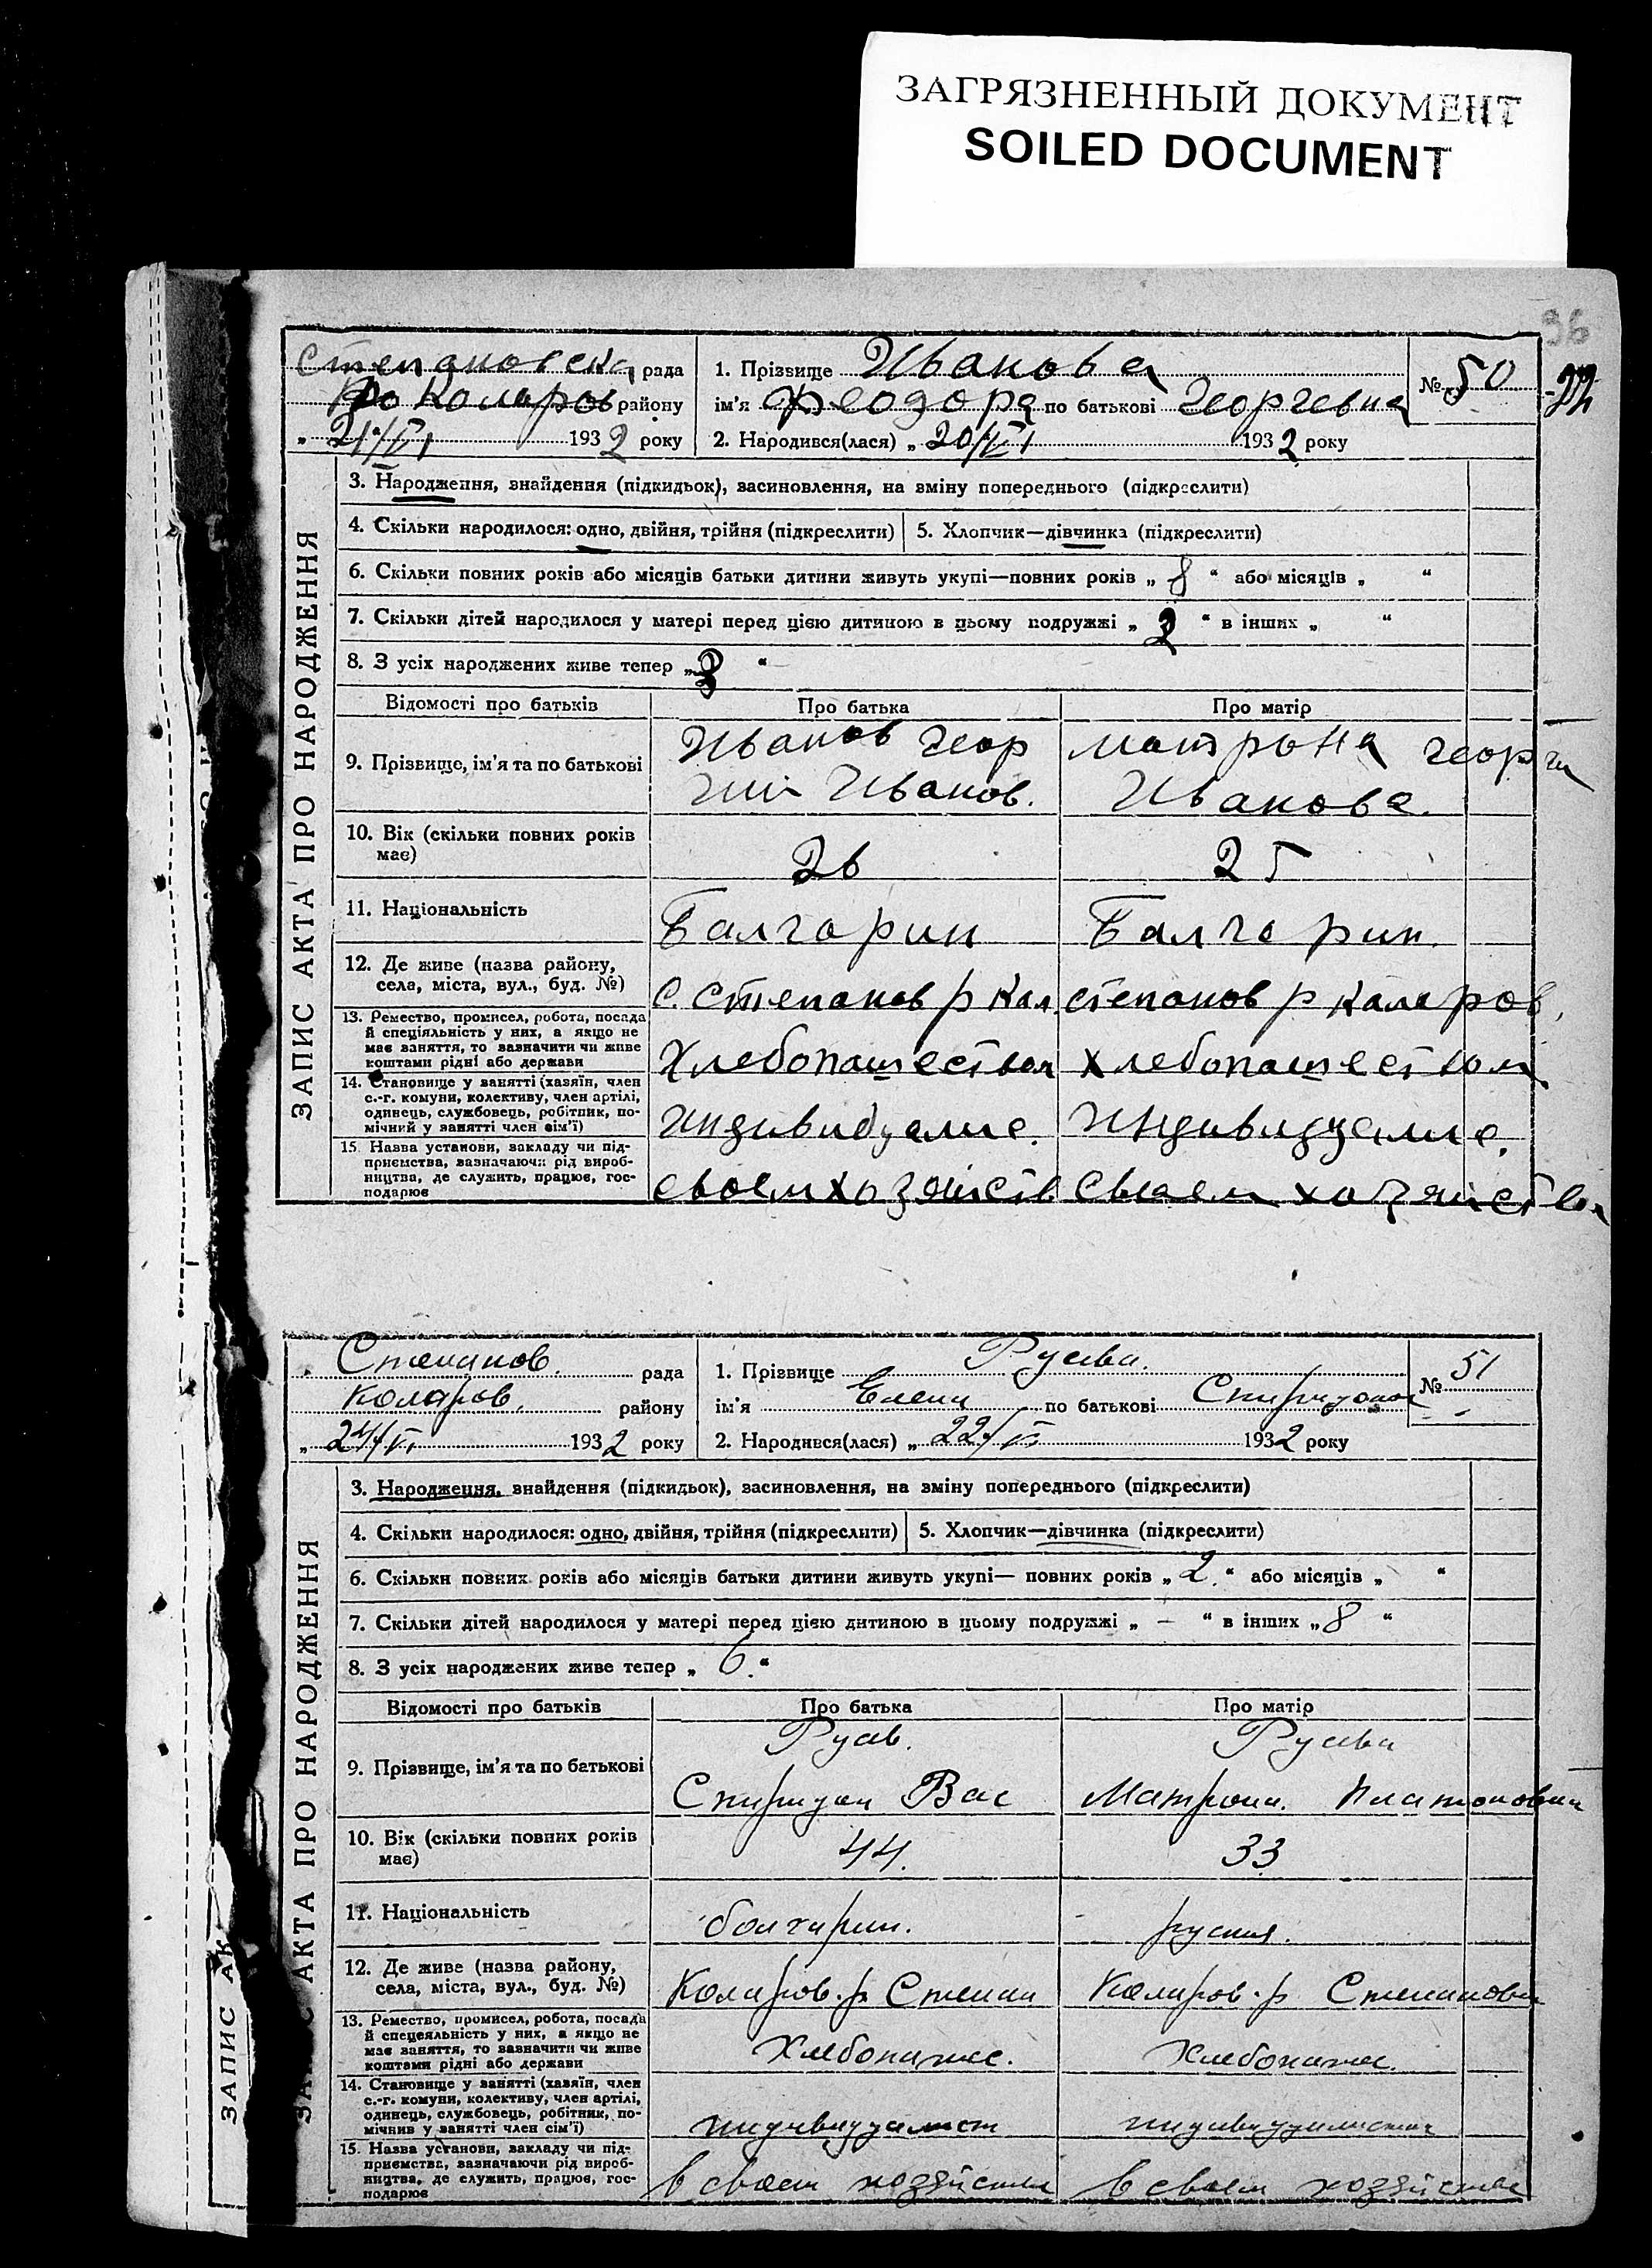 ЗАГРЯЗНЕННЫЙ ДОКУМЕНТ
SOILED DOCUMENT
36
Степановска рада
Коларов району
„ 21/VI 1932 року
1. Прізвище Иванова
ім'я Феодора по батькові Георгевна
2. Народився(лася) „ 20/VI 1932 року
№ 50
ЗАПИС АКТА ПРО НАРОДЖЕННЯ
3. Народження, знайдення (підкидьок), засиновлення, на зміну попереднього (підкреслити)
4. Скільки народилося: одно, двійня, трійня (підкреслити) 5. Хлопчик—дівчинка (підкреслити)
6. Скільки повних років або місяців батьки дитини живуть укупі—повних років „ 8 “ або місяців „ “
7. Скільки дітей народилося у матері перед цією дитиною в цьому подружжі „ 2 “ в інших „ “
8. З усіх народжених живе тепер „ 3 “
Відомості про батьків Про батька Про матір
9. Прізвище, ім'я та по батькові
Иванов Геор
гий Иванов.
Матрона Георги
Иванова.
10. Вік (скільки повних років
має)
26 25
11. Національність Балгарин Балгарин.
12. Де живе (назва району,
села, міста, вул., буд. №)
с. Степанов р Кал. Степанов р Каларов,
13. Ремество, промисел, робота, посада
й спеціяльність у них, а якщо не
має заняття, то зазначити чи живе
коштами рідні або держави
Хлебопашеством Хлебопашеством
14. Становище у занятті (хазяїн, член
с.-г. комуни, колективу, член артілі,
одинець, службовець, робітник, по-
мічний у занятті член сім'ї)
Индивидуалис. Индивидуалис.
15. Назва установи, закладу чи під-
приємства, зазначаючи рід вироб-
ництва, де служить, працює, гос-
подарює
своем хозяиств своем хозяиством
Степанов. рада
Коларов. району
„ 24/VI 1932 року
1. Прізвище Русева.
ім'я Елена по батькові Спиридонов
2. Народився(лася) „ 22/VI 1932 року
№ 51
ЗАПИС АК
АКТА ПРО НАРОДЖЕННЯ
3. Народження, знайдення (підкидьок), засиновлення, на зміну попереднього (підкреслити)
4. Скільки народилося: одно, двійня, трійня (підкреслити) 5. Хлопчик—дівчинка (підкреслити)
6. Скільки повних років або місяців батьки дитини живуть укупі— повних років „ 2. “ або місяців „ “
7. Скільки дітей народилося у матері перед цією дитиною в цьому подружжі „ – “ в інших „ 8 “
8. З усіх народжених живе тепер „ 6. “
Відомості про батьків Про батька Про матір
9. Прізвище, ім'я та по батькові
Русев.
Спиридон Вас
Русева
Матрона. Платоновна
10. Вік (скільки повних років
має)
44. 33
11. Національність болгарин. руская.
12. Де живе (назва району,
села, міста, вул., буд. №)
Коларов. р. Степан Коларов. р Степановка
13. Ремество, промисел, робота, посада
й спецеяльність у них, а якщо не
має заняття, то зазначити чи живе
коштами рідні або держави
Хлебопашес. Хлебопашес.
14. Становище у занятті (хазяїн, член
с.-г. комуни, колективу, член артілі,
одинець, службовець, робітник, по-
мічнив у занятті член сім'ї)
индивидуалист индивидуалистка
15. Назва установи, закладу чи під-
приємства, зазначаючи рід вироб-
ництва, де служить, працює, гос-
подарює
в своем хозяйстве в своем хозяйстве